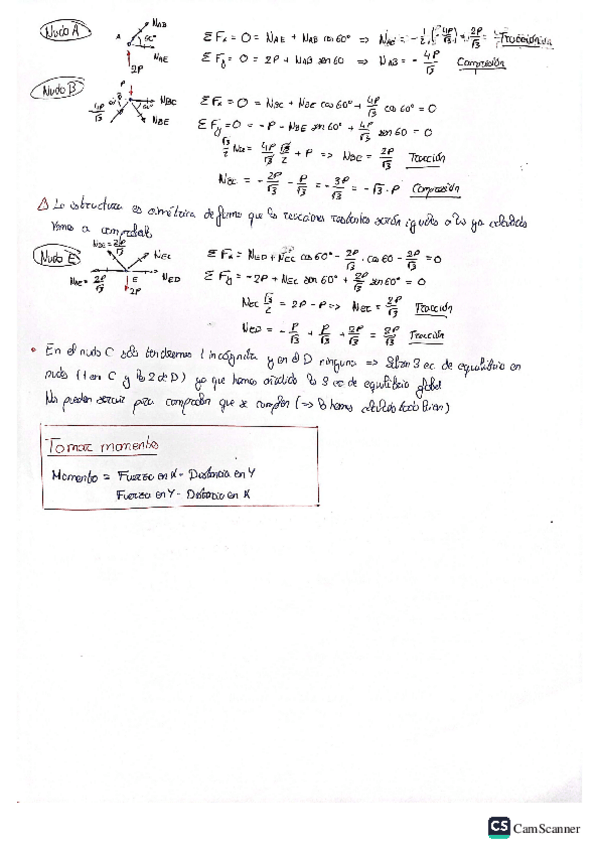 Nudo A
NAB
60°
A
NAE
2P
Σ Fx = 0 = NAE + NAB cos 60° => NAE = -1/2 · (-4P/√3) = 2P/√3 = Tracción
Σ Fy = 0 = 2P + NAB sen 60 => NAB = -4P/√3 Compresión
Nudo B
P
B
60°
NBC
4P/√3
NBE
Σ Fx = 0 = NBC + NBE cos 60° + 4P/√3 cos 60° = 0
Σ Fy = 0 = -P - NBE sen 60° + 4P/√3 sen 60 = 0
√3/2 NBE = 4P/√3 √3/2 + P => NBC = 2P/√3 Tracción
NBC = -2P/√3 - P/√3 = -3P/√3 = -√3 · P Compresión
⚠ La estructura es simétrica de forma que las reacciones restantes serán iguales a las ya calculadas
Vamos a comprobarlo
Nudo E
NBE = 2P/√3
NEC
NAE = 2P/√3
E
NED
2P
Σ Fx = NED + NEC cos 60° - 2P/√3 · cos 60 - 2P/√3 = 0
Σ Fy = -2P + NEC sen 60° + 2P/√3 sen 60° = 0
NEC √3/2 = 2P - P => NEC = 2P/√3 Tracción
NED = -P/√3 + P/√3 + 2P/√3 = 2P/√3 Tracción
• En el nudo C sólo tendremos 1 incógnita y en el D ninguna => Sobran 3 ec. de equilibrio en
nudos (1 en C y las 2 de D) ya que hemos añadido las 3 ec de equilibrio global
Nos pueden servir para comprobar que se cumplen (=> lo hemos calculado todo bien)
Tomar momentos
Momento = Fuerza en X - Distancia en Y
Fuerza en Y - Distancia en X
CS CamScanner